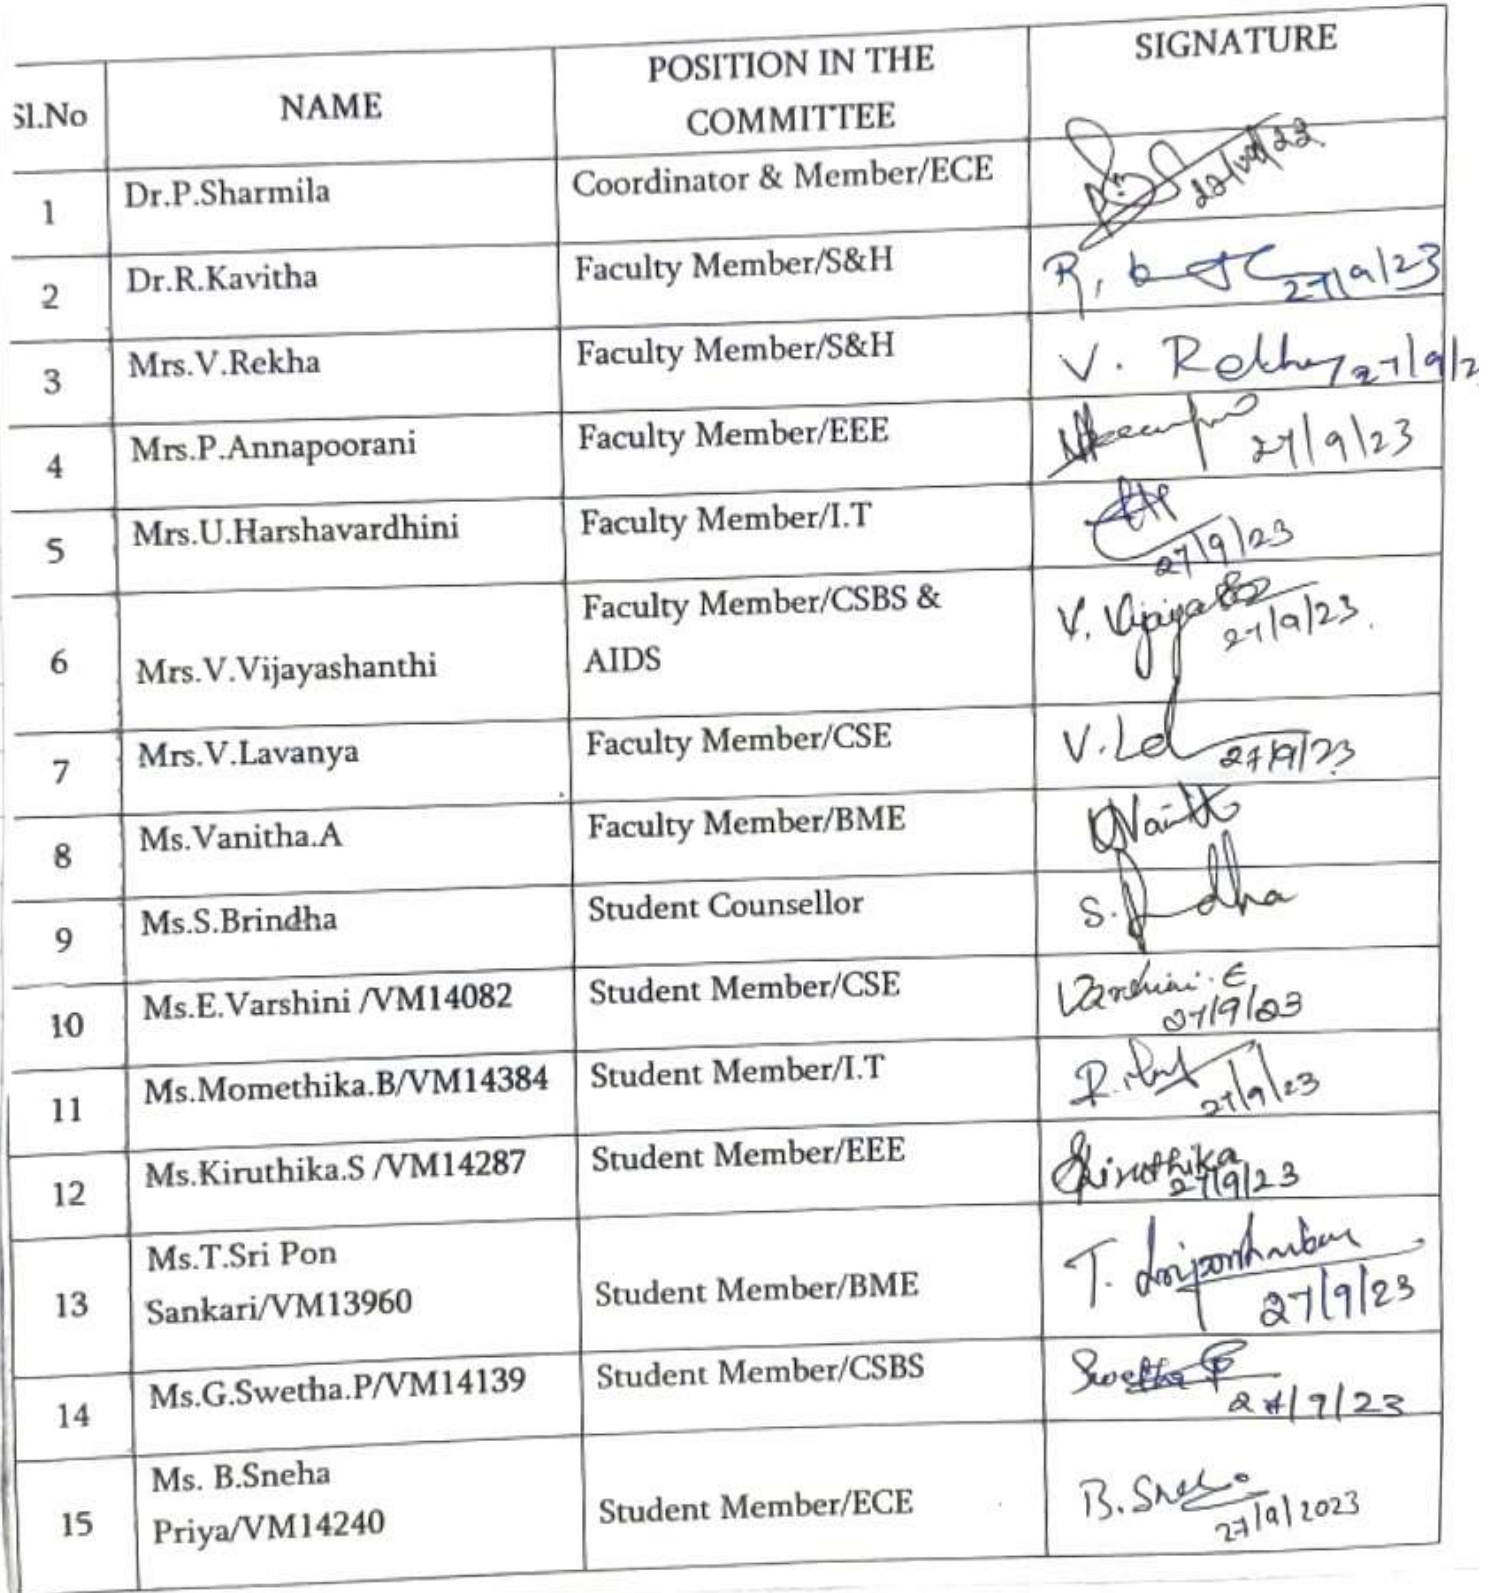 Sl.No NAME POSITION IN THE COMMITTEE SIGNATURE
1 Dr.P.Sharmila Coordinator & Member/ECE
2 Dr.R.Kavitha Faculty Member/S&H R, 27/9/23
3 Mrs.V.Rekha Faculty Member/S&H V. Rekha 27/9/2
4 Mrs.P.Annapoorani Faculty Member/EEE 27/9/23
5 Mrs.U.Harshavardhini Faculty Member/I.T 27/9/23
Faculty Member/CSBS &
6 Mrs.V.Vijayashanthi AIDS V. 27/9/23.
7 Mrs.V.Lavanya Faculty Member/CSE V. 27/9/23
8 Ms.Vanitha.A Faculty Member/BME
9 Ms.S.Brindha Student Counsellor S.
10 Ms.E.Varshini /VM14082 Student Member/CSE Varshini. E 27/9/23
11 Ms.Momethika.B/VM14384 Student Member/I.T 27/9/23
12 Ms.Kiruthika.S /VM14287 Student Member/EEE Kiruthika 27/9/23
Ms.T.Sri Pon
13 Sankari/VM13960 Student Member/BME T. 27/9/23
14 Ms.G.Swetha.P/VM14139 Student Member/CSBS Swetha P 27/9/23
Ms. B.Sneha
15 Priya/VM14240 Student Member/ECE B. 27/9/2023